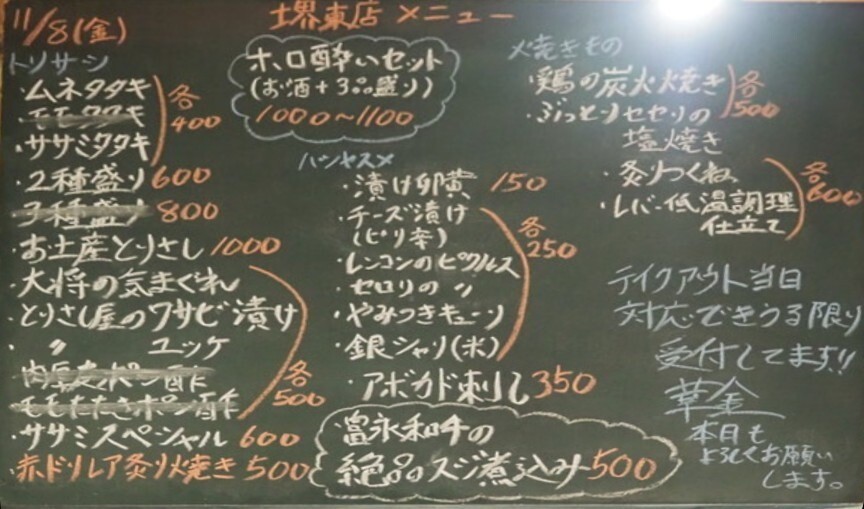 11/8(金)
堺東店 メニュー
トリサシ
・ムネタタキ
・モモタタキ
・ササミタタキ
各400
・2種盛り 600
・3種盛り 800
・お土産とりさし 1000
・大将の気まぐれ
・とりさし屋のワサビ漬け
・〃 ユッケ
ポン酢
・ももたたきポン酢
各500
・ササミスペシャル 600
・赤ドリレア炙り焼き 500
ホロ酔いセット
(お酒+3品盛り)
1000～1100
ハシヤスメ
・漬け卵黄 150
・チーズ漬け
(ピリ辛)
・レンコンのピクルス
・セロリの 〃
・やみつきキューリ
・銀シャリ(米)
各250
・アボカド刺し 350
富永和牛の
絶品スジ煮込み 500
焼きもの
・鶏の炭火焼き
・ぶっとりセセリの
塩焼き
各500
・炙りつくね
・レバー低温調理
仕立て
各600
テイクアウト当日
対応できうる限り
受付してます!!
華金
本日も
よろしくお願い
します。